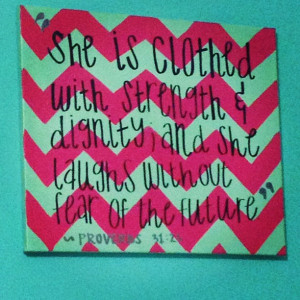 "She is clothed
with strength &
dignity; and she
laughs without
fear of the future"
~ PROVERBS 31:2